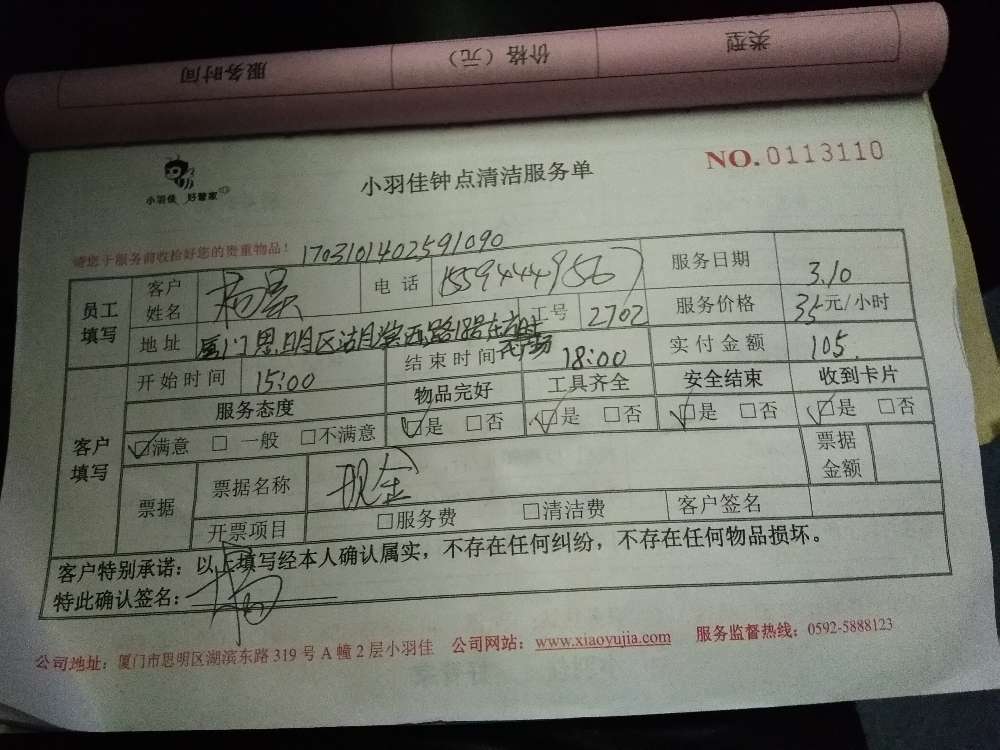 类型 价格（元） 服务时间
小羽佳 好管家
小羽佳钟点清洁服务单
NO.0113110
请您于服务前收拾好您的贵重物品！
1703101402591090
员工填写 客户姓名 电话 服务日期 3.10
地址 厦门思明区湖滨西路 工号 2702 服务价格 35元/小时
客户填写 开始时间 15:00 结束时间 18:00 实付金额 105.
服务态度 物品完好 工具齐全 安全结束 收到卡片
☑满意 □一般 □不满意 ☑是 □否 ☑是 □否 ☑是 □否 ☑是 □否
票据 票据名称 现金 票据金额
开票项目 □服务费 □清洁费 客户签名
客户特别承诺：以上填写经本人确认属实，不存在任何纠纷，不存在任何物品损坏。
特此确认签名：
公司地址：厦门市思明区湖滨东路319号A幢2层小羽佳 公司网站：www.xiaoyujia.com 服务监督热线：0592-5888123